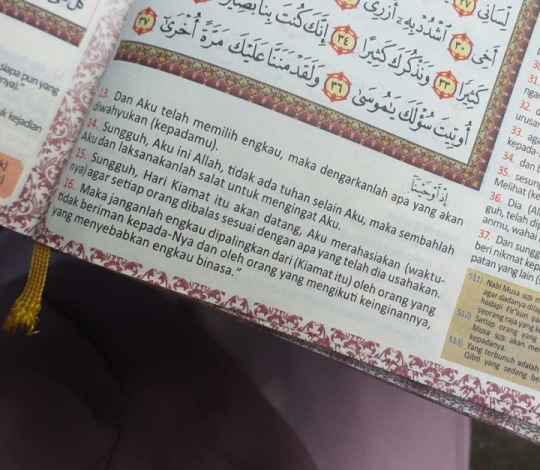 لِسَانِي ٢٧
أَخِي ٣٠ اشْدُدْ بِهِ أَزْرِي
كَثِيرًا ٣٣ وَنَذْكُرَكَ كَثِيرًا ٣٤ إِنَّكَ كُنْتَ بِنَا بَصِيرًا
أُوتِيتَ سُؤْلَكَ يٰمُوسٰى ٣٦ وَلَقَدْ مَنَنَّا عَلَيْكَ مَرَّةً أُخْرٰىٓ ٣٧
إِذْ أَوْحَيْنَآ
siapa pun yang
nya)."
kejadian
13. Dan Aku telah memilih engkau, maka dengarkanlah apa yang akan
diwahyukan (kepadamu).
14. Sungguh, Aku ini Allah, tidak ada tuhan selain Aku, maka sembahlah
Aku dan laksanakanlah salat untuk mengingat Aku.
15. Sungguh, Hari Kiamat itu akan datang, Aku merahasiakan (waktu-
nya) agar setiap orang dibalas sesuai dengan apa yang telah dia usahakan.
16. Maka janganlah engkau dipalingkan dari (Kiamat itu) oleh orang yang
tidak beriman kepada-Nya dan oleh orang yang mengikuti keinginannya,
yang menyebabkan engkau binasa."
30.
31.
32.
urusa
33. aga
kepada-
34. dan
35. sesun
Melihat (ke
36. Dia (Al
guh, telah di
anmu, wahai
37. Dan sungg
beri nikmat kep
patan yang lain (
511) Nabi Musa
agar dadanya dila
hadapi Fir'aun
seorang raja yang k
512) Setiap orang yang
Musa akan me
kepadanya.
513) Yang terbunuh adalah
Qibti yang sedang be